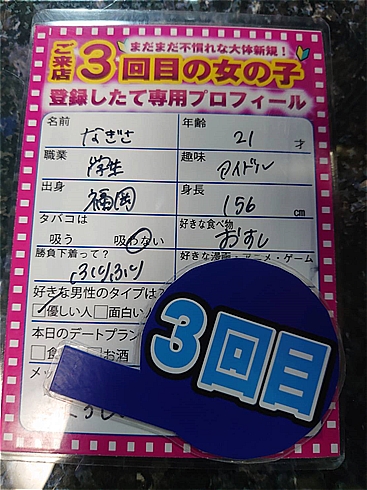 まだまだ不慣れな大体新規！
ご来店3回目の女の子
登録したて専用プロフィール
名前 なぎさ 年齢 21 才
職業 学生 趣味 アイドル
出身 福岡 身長 156 cm
タバコは 好きな食べ物
吸う 吸わない おすし
勝負下着って？ 好きな漫画・アニメ・ゲーム
ふりふり
好きな男性のタイプは？
優しい人 面白い人
本日のデートプラン
食 お酒
メッ
3回目